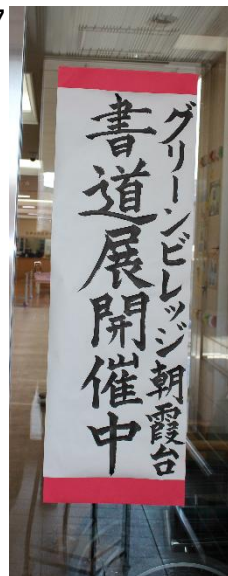 グリーンビレッジ朝霞台
書道展開催中